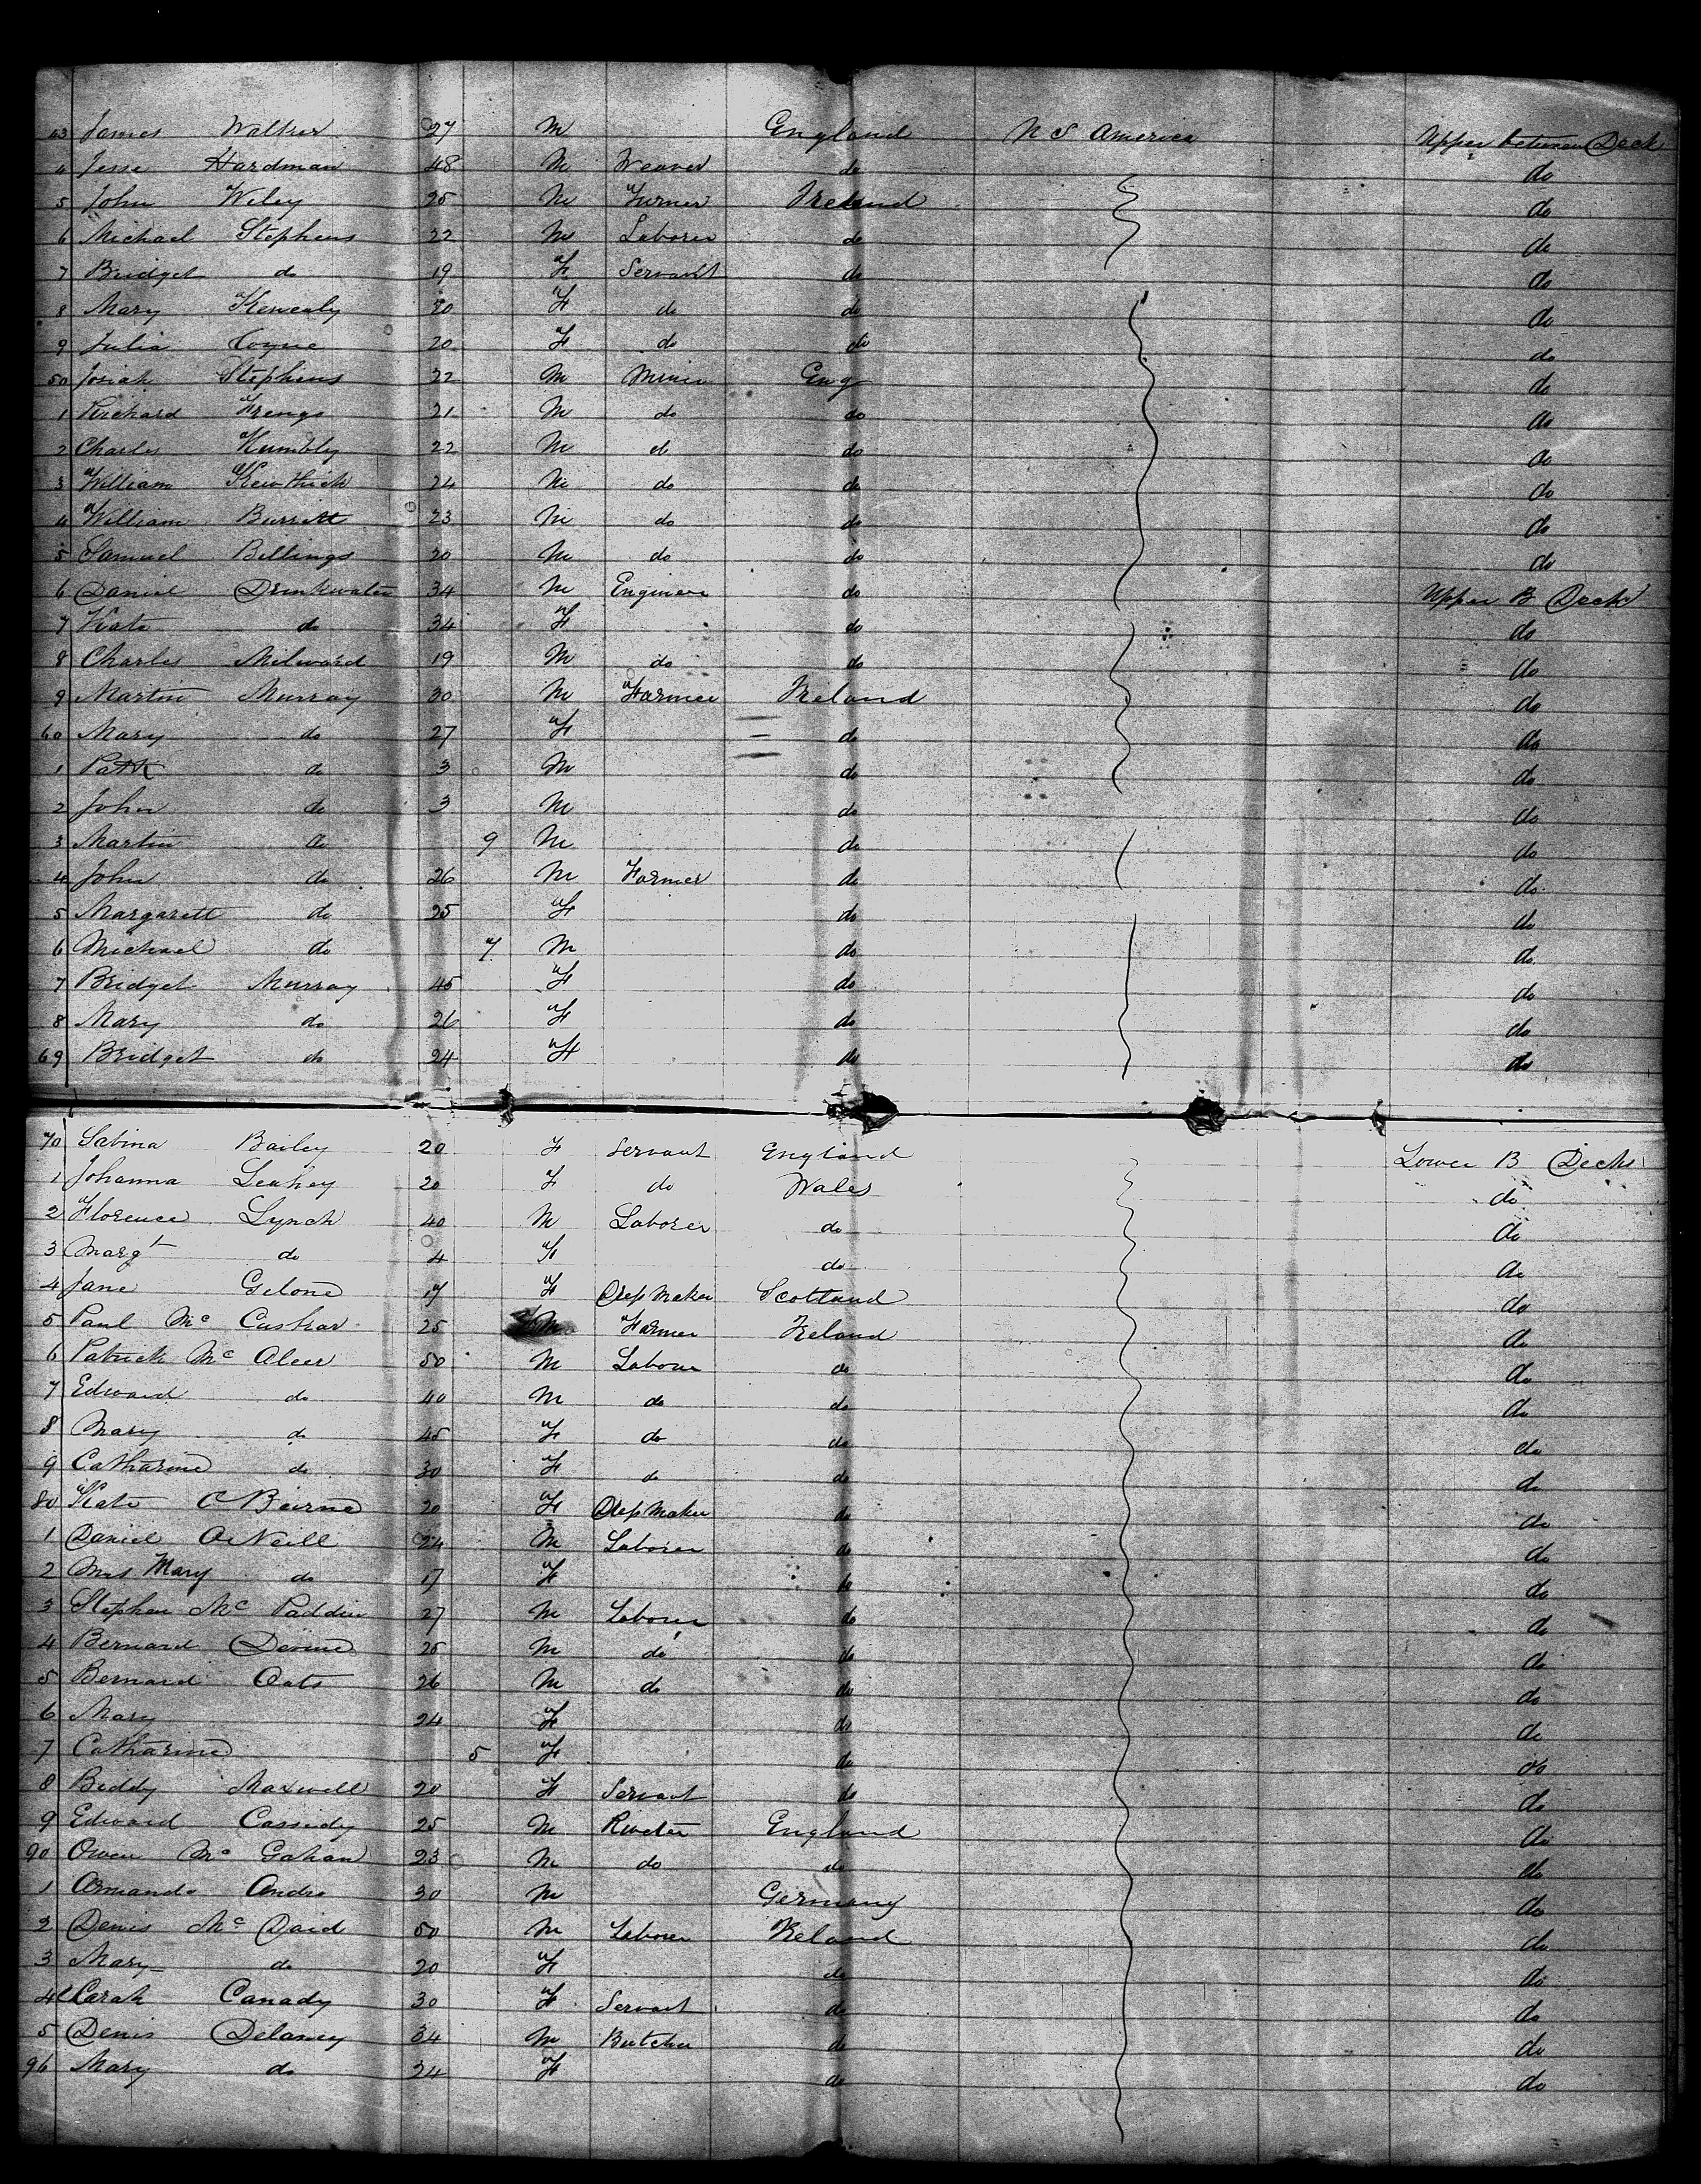 43 James Walker 27 M England U S America Upper between Deck
4 Jesse Hardman 48 M Weaver do do
5 John Wiley 25 M Turner Ireland do
6 Michael Stephens 22 M Laborer do do
7 Bridget do 19 F Servant do do
8 Mary Kenealy 20 F do do do
9 Julia Coyne 20 F do do do
50 Josiah Stephens 22 M Miner Eng do
1 Richard 21 M do do do
2 Charles Humbly 22 M do do do
3 William 24 M do do do
4 William Burrett 23 M do do do
5 Samuel Billings 20 M do do do
6 Daniel Drinkwater 34 M Engineer do Upper B Deck
7 Kate do 34 F do do
8 Charles Milward 19 M do do do
9 Martin Murray 30 M Farmer Ireland do
60 Mary do 27 F do do
1 Patk do 3 M do do
2 John do 3 M do do
3 Martin do 9 M do do
4 John do 26 M Farmer do do
5 Margarett do 25 F do do
6 Michael do 7 M do do
7 Bridget Murray 45 F do do
8 Mary do 26 F do do
69 Bridget do 24 F do do
70 Sabina Bailey 20 F Servant England Lower B Decks
1 Johanna Leahey 20 F do Wales do
2 Florence Lynch 40 M Laborer do do
3 Margt do 4 F do do
4 Jane Gelone 17 F Scotland do
5 Paul Mc Cushar 25 M Farmer Ireland do
6 Patrick Mc Aleer 50 M Labour do do
7 Edward do 40 M do do do
8 Mary do 45 F do do do
9 Catharine do 30 F do do do
80 Kate O Beirne 20 F do do
1 Daniel O Neill 24 M Laborer do do
2 Mrs Mary do 17 F do do
3 Stephen Mc Paddin 27 M Laborer do do
4 Bernard Devine 25 M do do do
5 Bernard Oats 26 M do do do
6 Mary 24 F do do
7 Catharine 5 F do do
8 Biddy Maxwell 20 F Servant do do
9 Edward Cassidy 25 M Riveter England do
90 Owen Mc Gahan 23 M do do do
1 Armando Andre 30 M Germany do
2 Denis Mc Daid 50 M Laborer Ireland do
3 Mary do 20 F do do
4 Sarah Canady 30 F Servant do do
5 Denis Delaney 34 M Butcher do do
96 Mary do 24 F do do